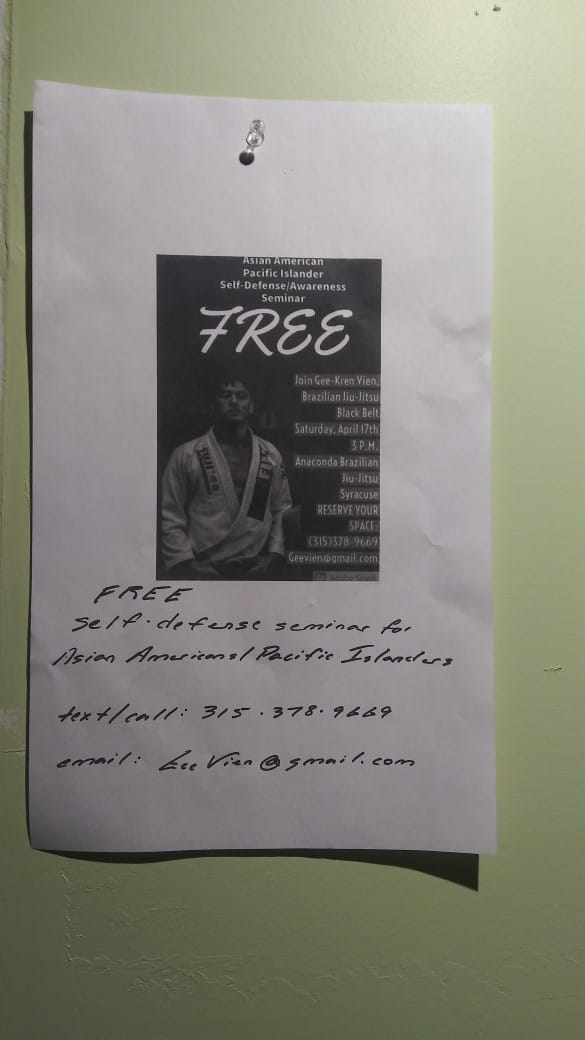 Asian American
Pacific Islander
Self-Defense/Awareness
Seminar
FREE
Join Gee-Kren Vien,
Brazilian Jiu-Jitsu
Black Belt
Saturday, April 17th
3 P.M.
Anaconda Brazilian
Jiu-Jitsu
Syracuse
RESERVE YOUR
SPACE:
(315)378-9669
Geevien@gmail.com
Adobe Spark
FREE
self-defense seminar for
Asian Americans/Pacific Islanders
text/call: 315.378.9669
email: GeeVien@gmail.com